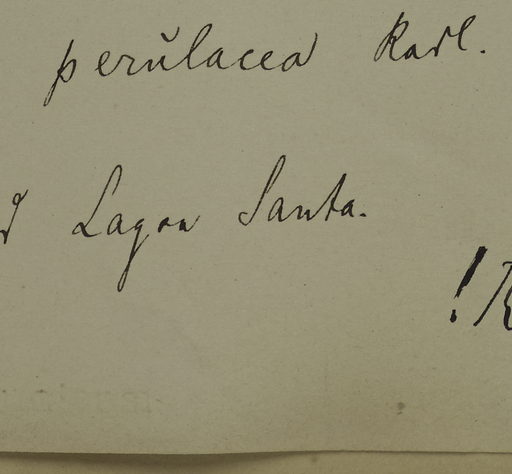 perŭlacea Radl.
Lagoa Santa.
!